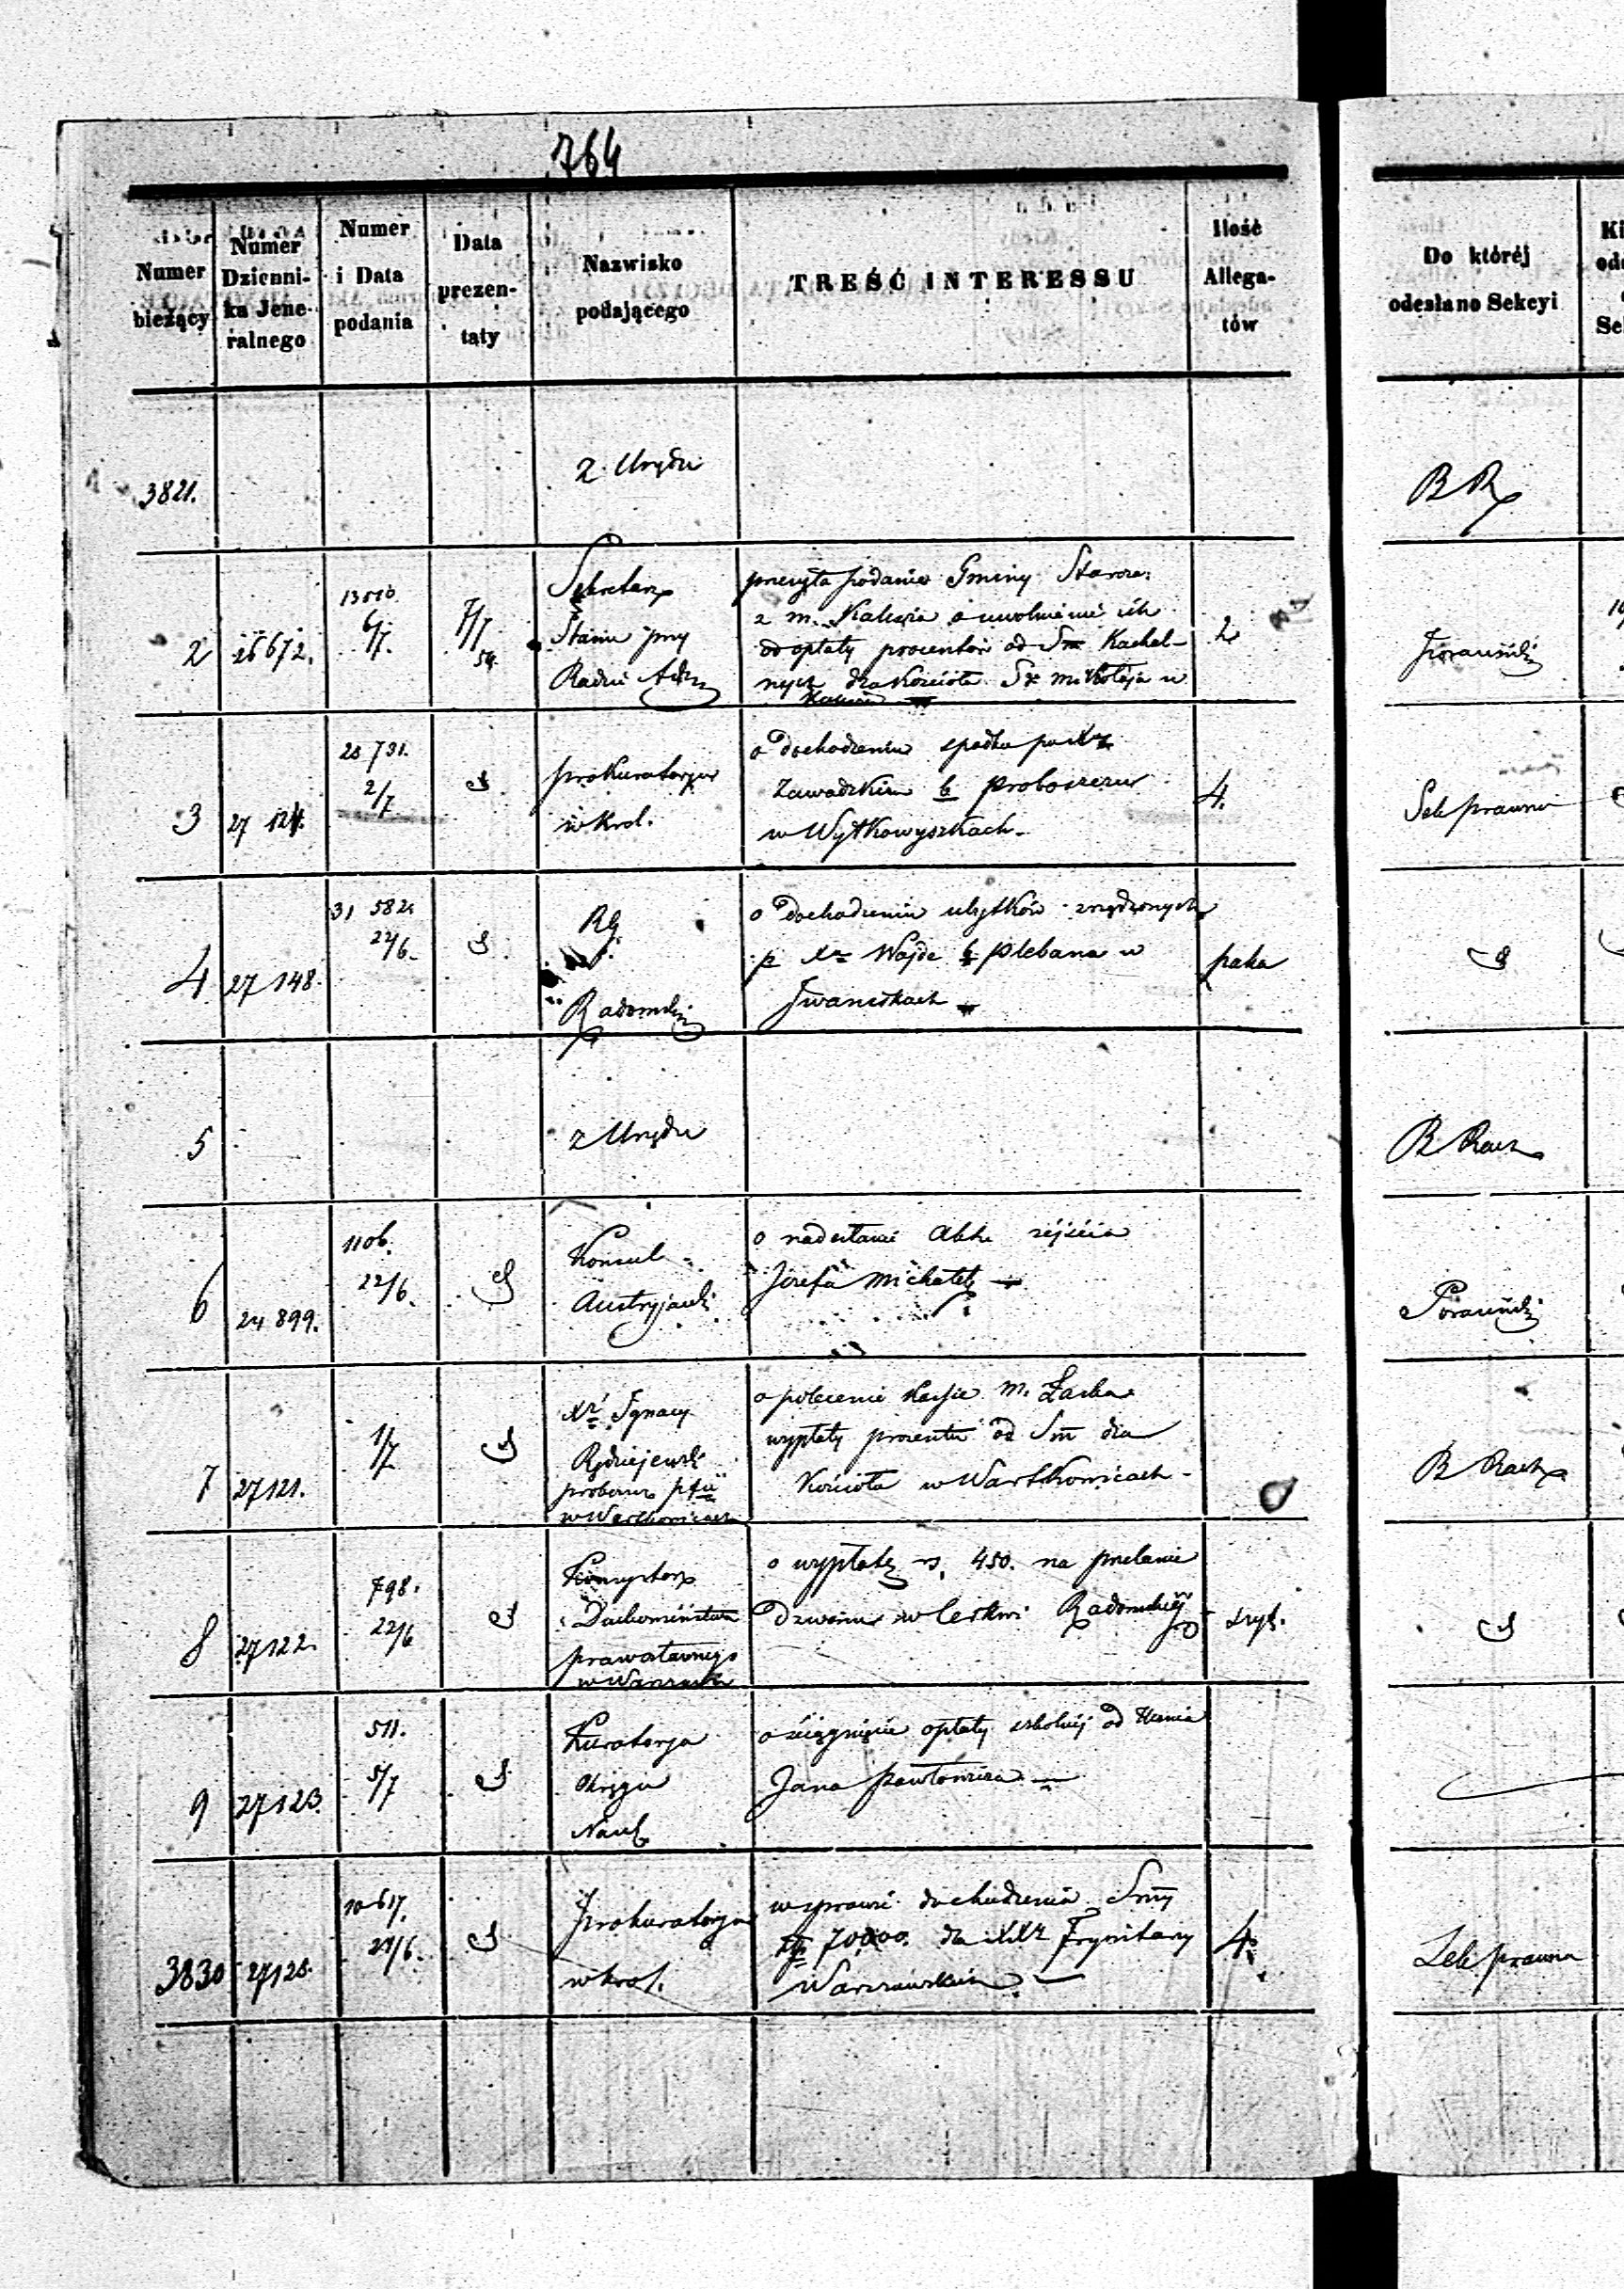 764
Numer bieżący
Numer Dzienni-ka Jene-ralnego
Numer i Data podania
Data prezen-taty
Nazwisko podającego
TREŚĆ INTERESSU
Ilość Allega-tów
Do której odesłano Sekcyi
3821.
z Urzędu
B R
2
26672.
6/7.
7/7 54.
Sekretarz
Stanu przy
Radzie Adm
przesyła podanie Gminy Staroza:
z m. Kalisza o uwolnienie ich
od opłaty procentów od Sm Kachal-
nych dla Kościoła Sgo Mikołaja w
Kaliszu
2
3
27 124.
2/7.
Prokuratorya
w Krol.
o dochodzeniu spadku po Xdz
Zawadzkim b proboszczu
w Wyłkowyszkach
4.
Sek prawna
4
27 148.
31 582
22/6.
RG
Radomski
o dochodzeniu ubytków zrządzonych
p Xa Wajde b plebana w
Iwaniskach
paka
5
z Urzędu
B Rach
6
24 899.
1106.
22/6.
Konsul
Austryjacki
o nadesłanie Aktu zejścia
Józefa Michałek
7
27121.
1/7
Xdz Ignacy
proboszcz pfii
w Wartkowicach
o polecenie Kassie m. Łaska
wypłaty procentu od Sm dla
Kościoła w Wartkowicach
B Rach
8
27122.
798.
22/6
Konsystorz
Duchowieństwa
prawosławnego
w Warszawie
o wypłatę rs. 450. na przelanie
Dzwonu w Cerkwi Radomskiej
9
27123.
511.
5/7
Kuratorya
Okręgu
Nauk
o ściągnięcie opłaty szkolnéj od Ucznia
Jana Pawłowicza
3830
27125.
10617.
21/6.
Prokuratorya
w Krol.
w sprawie dochodzenia Smy
złp 70000. dla XXX Trynitarzy
Warszawskich
4
Sek prawna